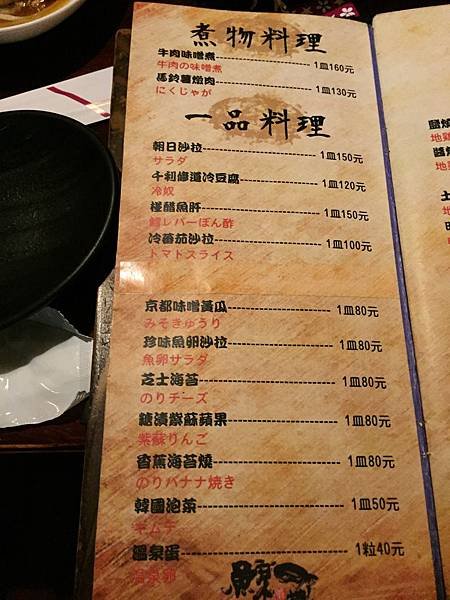 煮物料理
牛肉味噌煮----------1皿160元
牛肉の味噌煮
馬鈴薯燉肉----------1皿130元
にくじゃが
一品料理
朝日沙拉----------1皿150元
サラダ
千利修道冷豆腐----------1皿120元
冷奴
椪醋魚肝----------1皿150元
鱈レバーぽん酢
冷蕃茄沙拉----------1皿100元
トマトスライス
京都味噌黃瓜----------1皿80元
みそきゅうり
珍味魚卵沙拉----------1皿80元
魚卵サラダ
芝士海苔----------1皿80元
のりチーズ
糖漬紫蘇蘋果----------1皿80元
紫蘇りんご
香蕉海苔燒----------1皿80元
のりバナナ焼き
韓國泡菜----------1皿50元
キムチ
溫泉蛋----------1粒40元
温泉卵